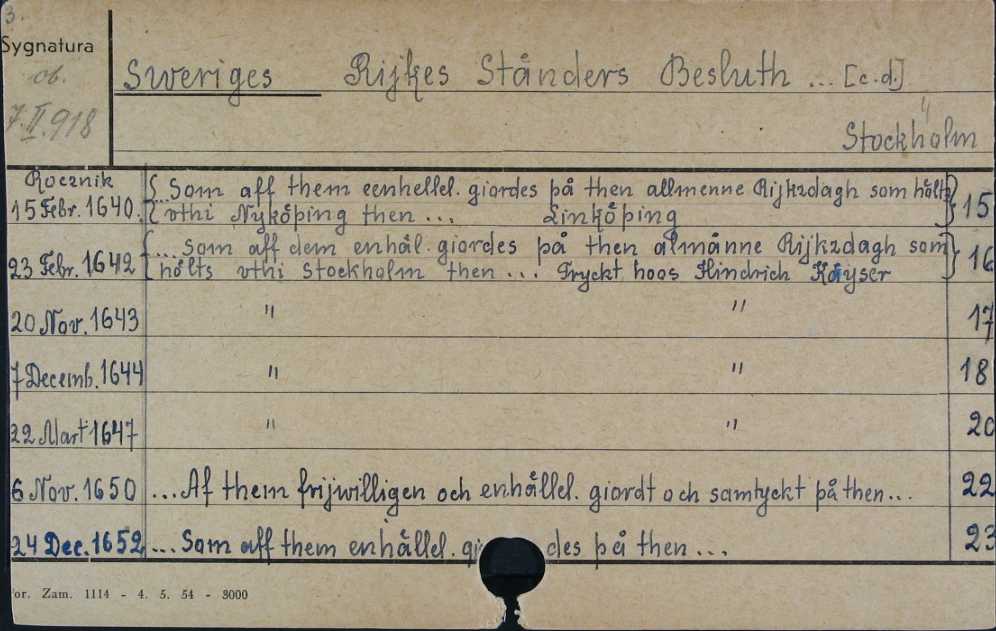 3.
Sygnatura
ob.
7.II.918
Sweriges Rijkes Ständers Besluth ... [c.d.]
Stockholm
Rocznik
15 Febr. 1640. {...Som aff them eenhellel. giordes på then allmenne Rijkzdagh som hölts
vthi Nyköping then ... Linköping } 15
23 Febr. 1642 {...Som aff dem enhäl. giordes på then almänne Rijkzdagh som
hölts vthi Stockholm then ... Tryckt hoos Hindrich Käyser } 16
20 Nov. 1643 " " 17
7 Decemb. 1644 " " 18
22 Mart 1647 " " 20
6 Nov. 1650 ...Af them frijwilligen och enhållel. giordt och samtyckt på then... 22
24 Dec. 1652 ...Som aff them enhållel. gi des på then ... 23
or. Zam. 1114 - 4. 5. 54 - 3000